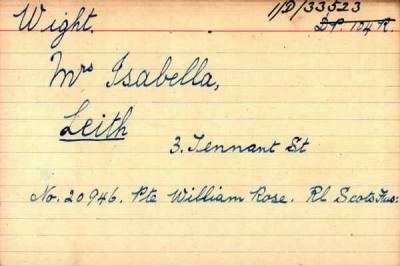 Wight.
1/D/33523
D.P. 104 R.
Mrs Isabella,
Leith
3. Tennant St
No. 20946. Pte William Rose. Rl Scots Fus: